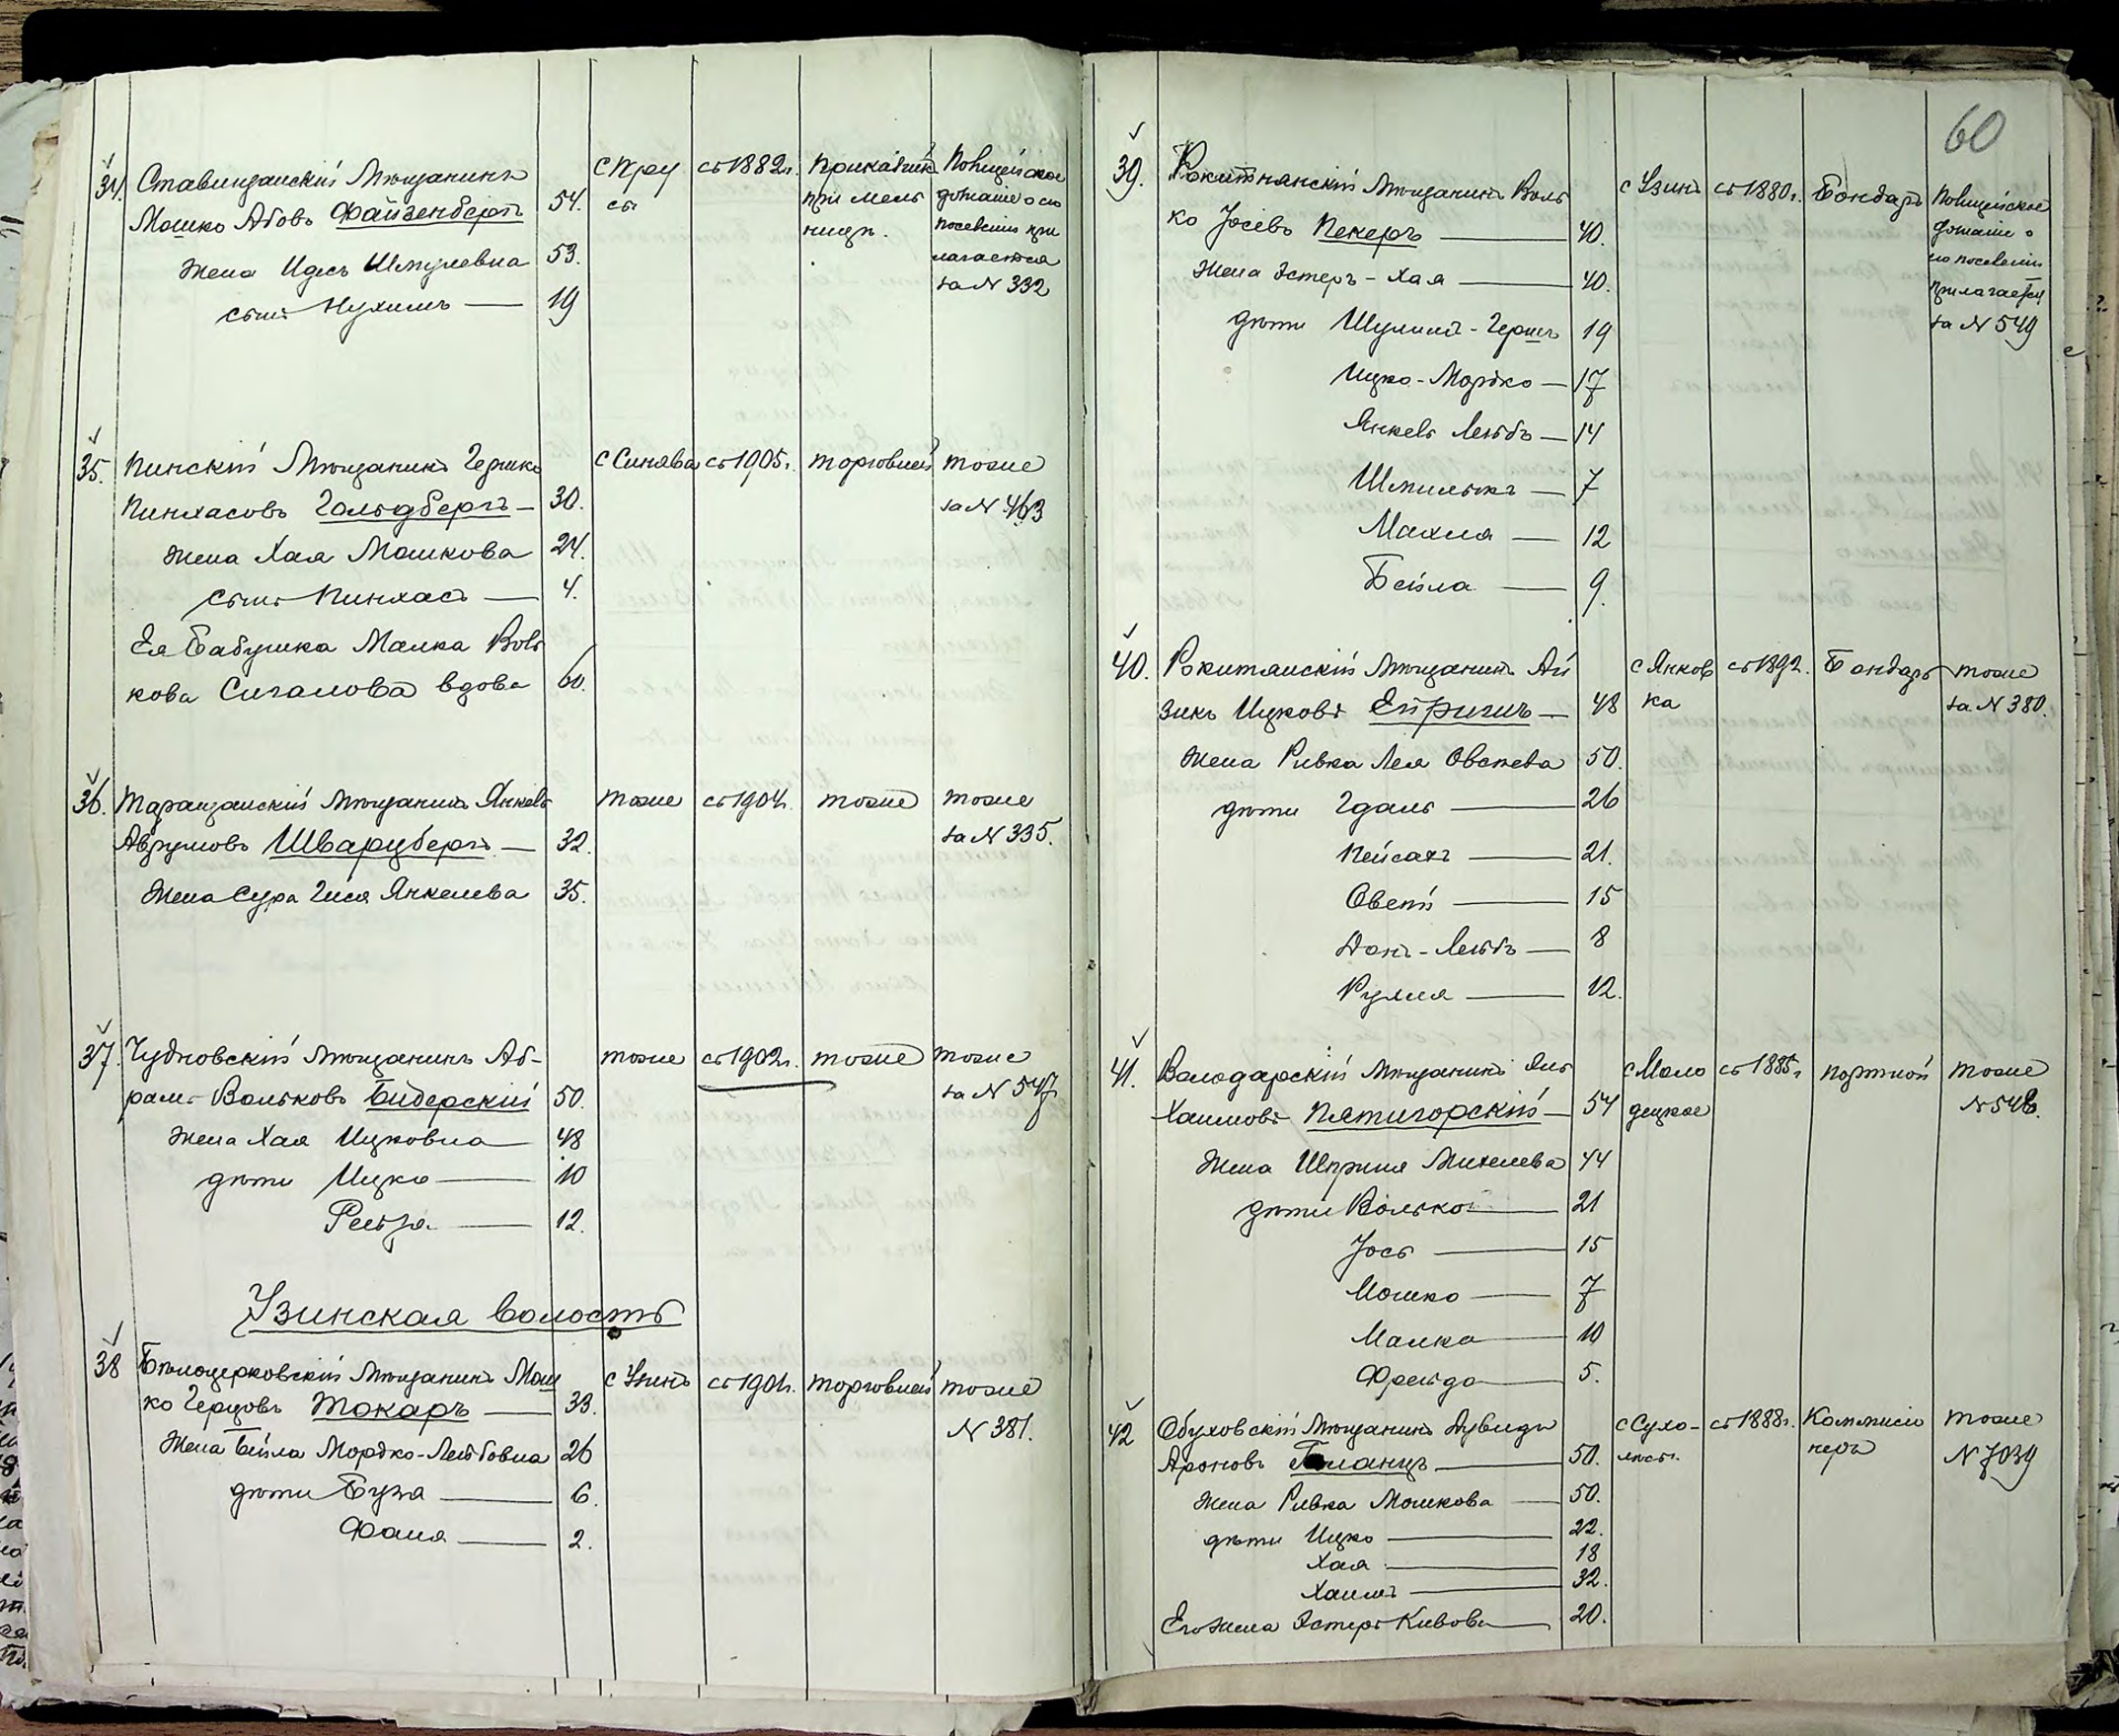 34. Ставищанскій Мѣщанинъ
Мошко Абовъ Файзенбергъ 54.
Жена Идесь Шмулевна 53.
сынъ Нухимъ — 19
с Пру
сы
съ 1882 г.
Приказчик
при мель
ницѣ.
Полицейское
дознаніе о его
поселеніи при
лагается
за N 332
35. Пинскій Мѣщанинъ Гершко
Пинхасовъ Гольдбергъ — 30.
Жена Хая Мошкова 24.
Сынъ Пинхасъ — 4.
Ея Бабушка Малка Воль
кова Сигалова вдова 60.
с Синява
съ 1905 г.
торговлей
тоже
за N 463
36. Таращанскій Мѣщанинъ Янкель
Аврумовъ Шварцбергъ — 32.
Жена Сура Гися Янкелева 35.
тоже
съ 1904 г.
тоже
тоже
за N 335.
37. Чудновскій Мѣщанинъ Аб-
рамъ Вольковъ Бидерскій 50.
Жена Хая Ицковна 48
дѣти Ицко — 10
Рейза — 12.
тоже
съ 1902 г.
тоже
тоже
за N 547
Узинская волость
38 Бѣлоцерковскій Мѣщанинъ Мош
ко Герцовъ Токаръ — 33.
Жена Бейла Мордко-Лейбовна 26
дѣти Буза — 6.
Фаня — 2.
с Узинъ
съ 1901 г.
торговлей
тоже
N 381.
60
39. Рокитнянскій Мѣщанинъ Воль
ко Іосевъ Пекеръ — 40.
Жена Эстеръ-Хая — 40.
дѣти Шулимъ-Гершъ 19
Ицко-Мордко — 17
Янкель Лейбъ — 14
Шмилыкъ — 7
Махля — 12
Бейла — 9.
с Узинъ
съ 1880 г.
Бондарь
Полицейское
дознаніе о
его поселеніи
прилагается
за N 549
40. Рокитянскій Мѣщанинъ Ай
зикъ Ицковъ Епришъ — 48
Жена Ривка Лея Овсеева 50.
дѣти Гдаль — 26
Пейсахъ — 21.
Овсей — 15
Донъ-Лейбъ — 8
Рухля — 12.
с Янков
ка
съ 1892.
Бондарь
тоже
за N 380.
41. Володарскій Мѣщанинъ Яль
Хаимовъ Пятигорскій — 54
Жена Шприня Михелева 44
дѣти Волько — 21
Іось — 15
Мошко — 7
Малка — 10
Фрейда — 5.
с Моло
децкое
съ 1885 г.
портной
тоже
N 548.
42 Обуховскій Мѣщанинъ Дувидъ
Ароновъ — 50.
Жена Ривка Мошкова — 50.
дѣти Ицко — 22.
Хая — 18
Хаимъ — 32.
Его жена Эстеръ Кивова — 20.
с Сухо-
лѣсы.
съ 1888 г.
Коммисіо
неръ
тоже
N 7039